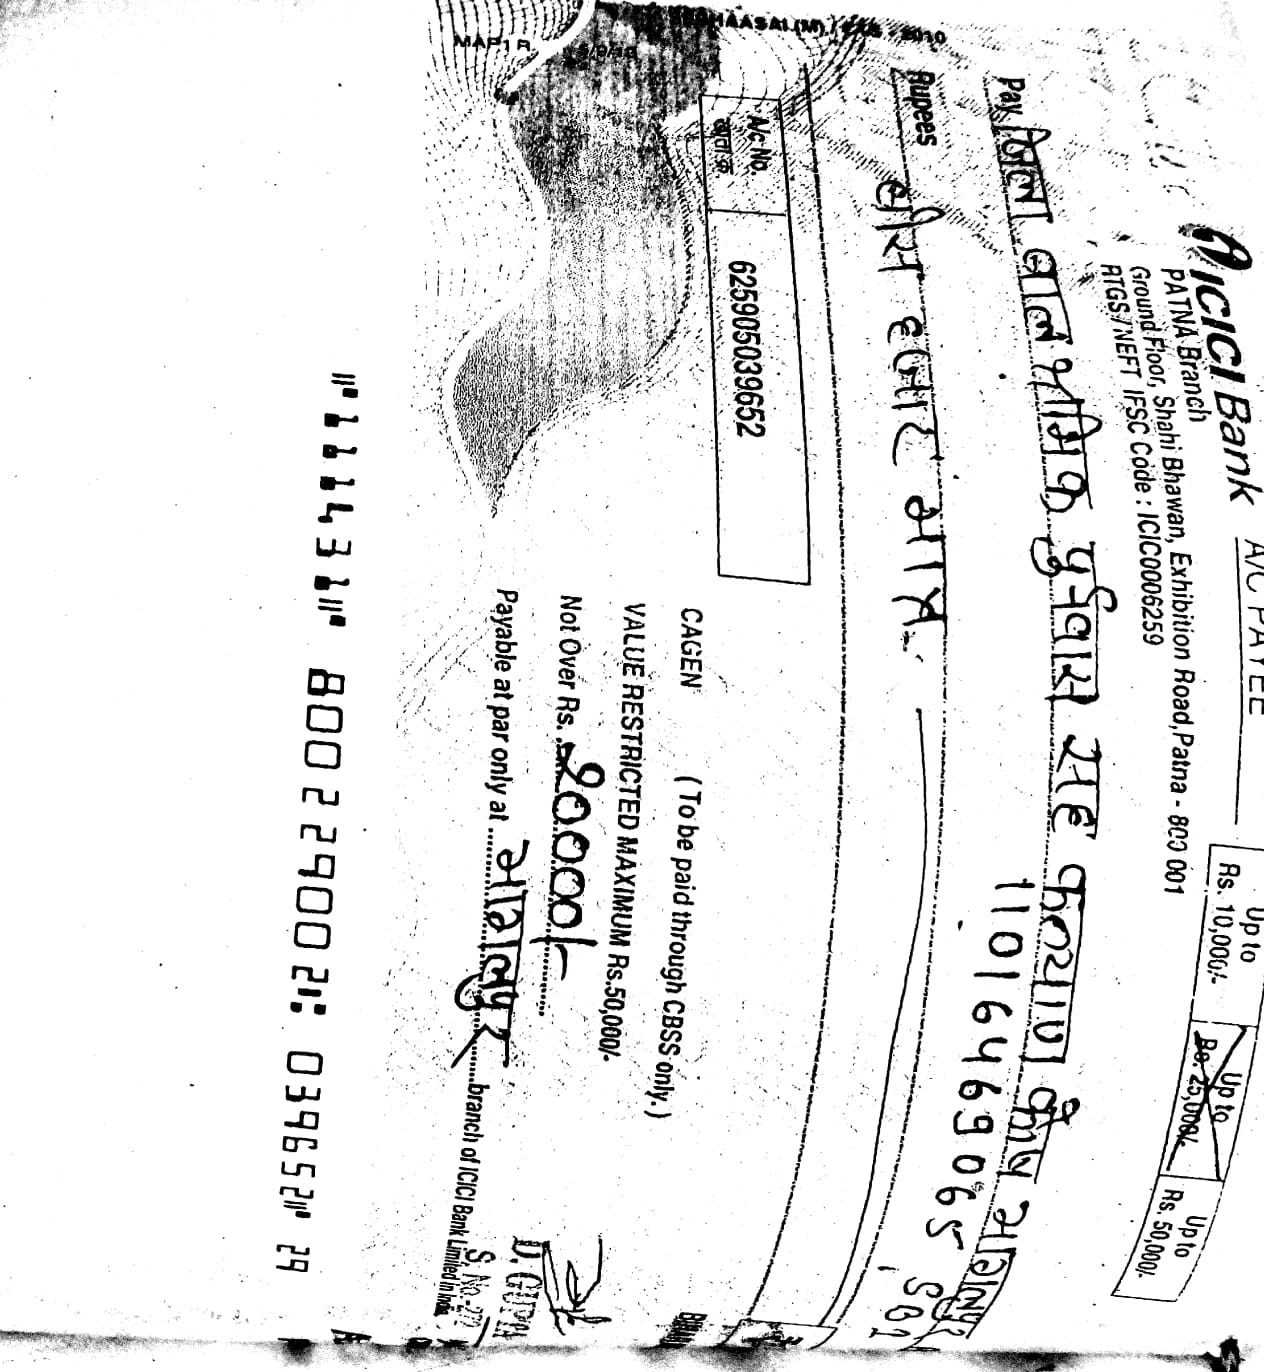 ICICI Bank
A/C PAYEE
PATNA Branch
Ground Floor, Shahi Bhawan, Exhibition Road, Patna - 800 001
RTGS / NEFT IFSC Code : ICIC0006259
Up to
Rs. 10,000/-
Up to
Rs. 25,000/-
Up to
Rs. 50,000/-
Pay जिला बाल श्रमिक पुर्नवास सह कल्याण कोष भागलपुर
11016469065 SBI
Rupees बीस हजार मात्र
A/c No.
खाता क्र
625905039652
CAGEN (To be paid through CBSS only.)
VALUE RESTRICTED MAXIMUM Rs.50,000/-
Not Over Rs. 20000/-
Payable at par only at भागलपुर branch of ICICI Bank Limited in India
D. GUPTA
S. No.
⑈111431⑈ 800229002⑆ 039652⑈ 29